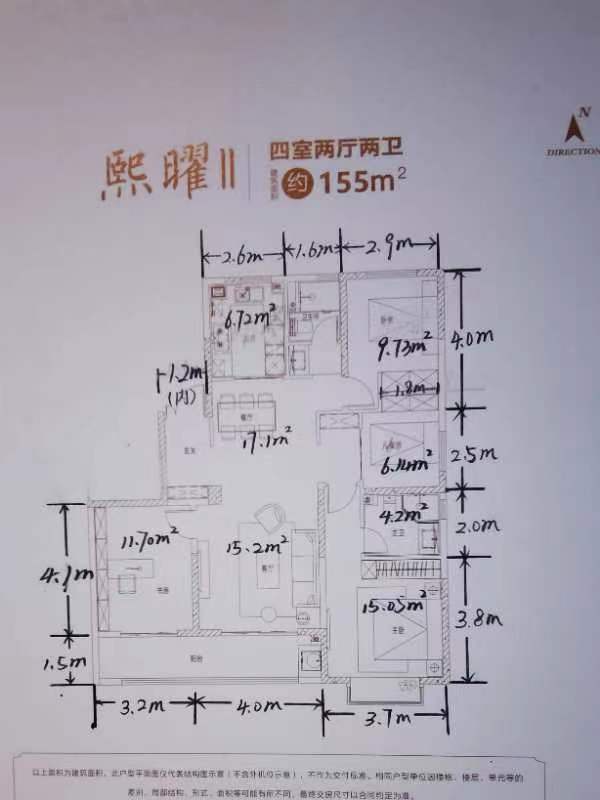 N
DIRECTION
熙曜II
四室两厅两卫
建筑面积
约155m²
2.6m
1.6m
2.9m
6.72m²
9.73m²
4.0m
1.2m
(内)
1.8m
餐厅
17.1m²
玄关
6.14m²
2.5m
4.2m²
主卫
2.0m
11.70m²
15.2m²
客厅
4.1m
书房
15.05m²
主卧
3.8m
1.5m
阳台
3.2m
4.0m
3.7m
以上面积为建筑面积，此户型平面图仅代表结构图示意（不含外机位示意），不作为交付标准，相同户型单位因楼栋、楼层、采光等的
差别，局部结构、形式、面积等可能有所不同，最终交房尺寸以合同约定为准。